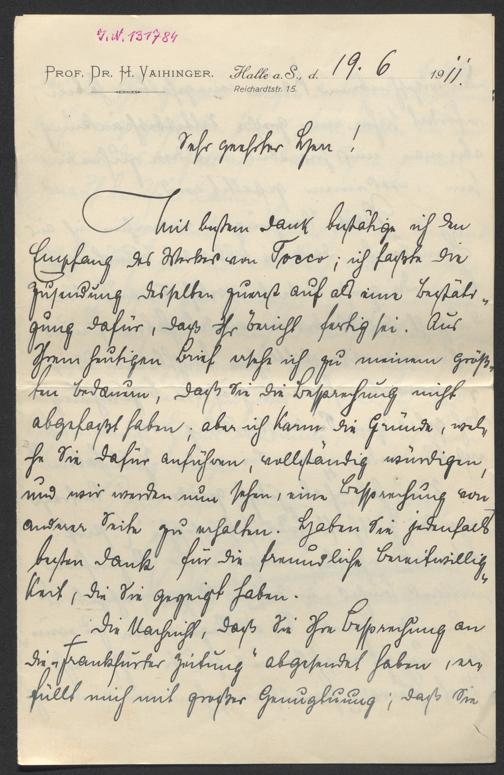 J.N. 131784
PROF. DR. H. VAIHINGER. Halle a. S., d. 19. 6 1911.
Reichardtstr. 15.
Sehr geehrter Herr!
Mit bestem Dank bestätige ich den
Empfang des Werkes von Tocco; ich faßte die
Zusendung desselben zuerst auf als eine Bestäti-
gung dafür, daß Ihr Bericht fertig sei. Aus
Ihrem heutigen Brief ersehe ich zu meinem größ-
ten Bedauern, daß Sie die Besprechung nicht
abgefaßt haben; aber ich kann die Gründe, wel-
che Sie dafür anführen, vollständig würdigen,
und wir werden nun sehen, eine Besprechung von
anderer Seite zu erhalten. Haben Sie jedenfalls
besten Dank für die freundliche Bereitwillig-
keit, die Sie gezeigt haben.
Die Nachricht, daß Sie Ihre Besprechung an
die „Frankfurter Zeitung" abgesendet haben, er-
füllt mich mit großer Genugtuung; daß Sie